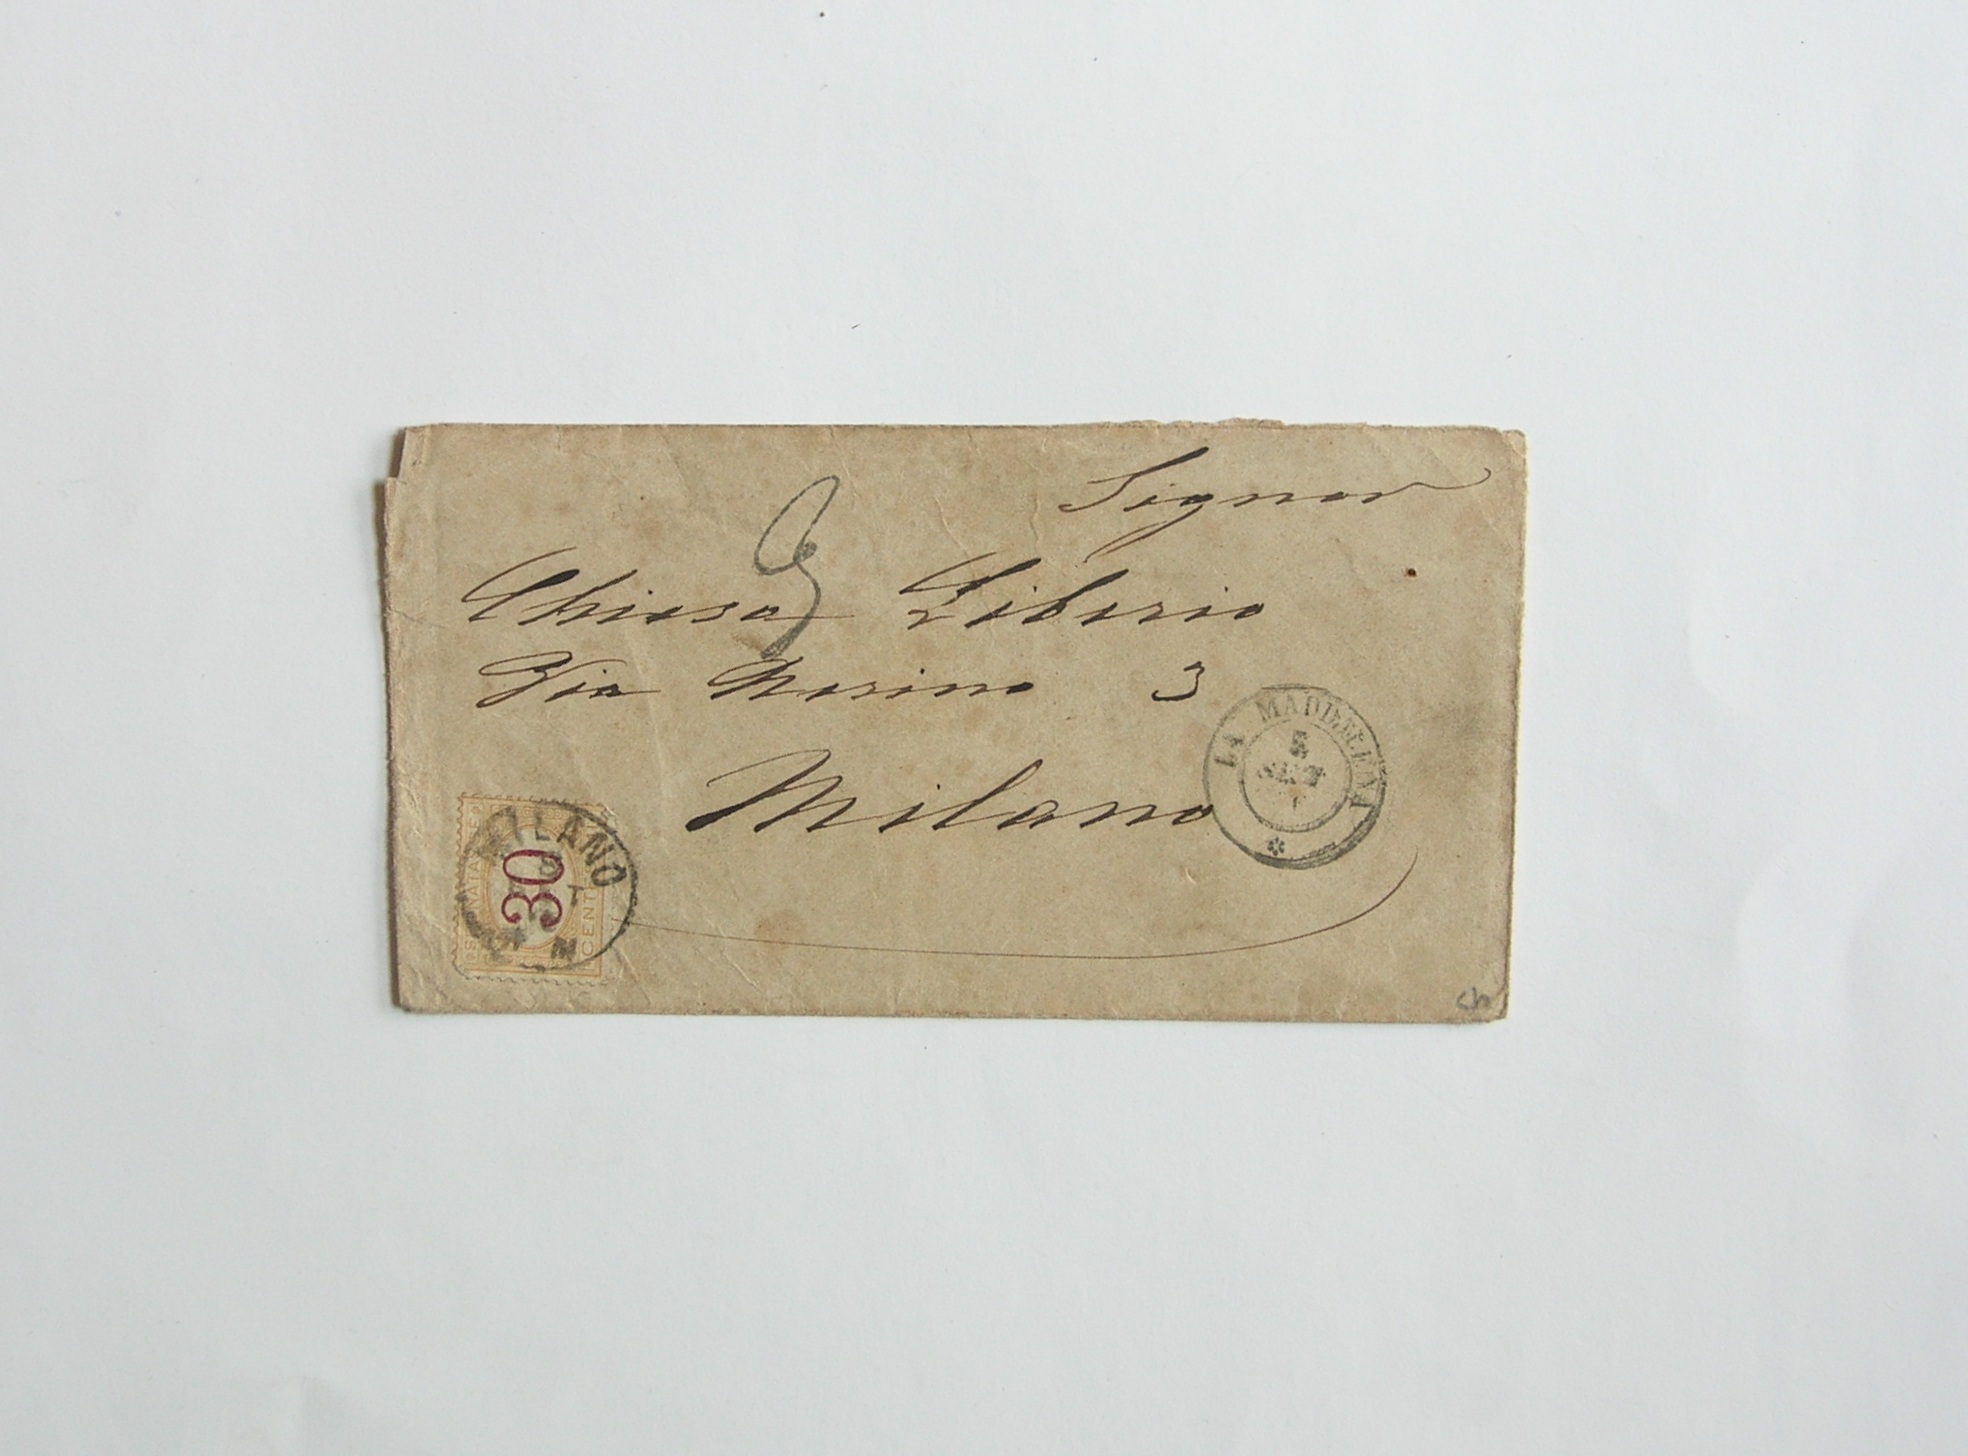 Signor
Chiesa Liborio
Via Marino 3
Milano
LA MADDALENA
5
SET
MILANO
30
CENT